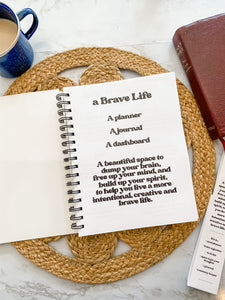 a Brave Life
A planner
A journal
A dashboard
A beautiful space to
dump your brain,
free up your mind, and
build up your spirit,
to help you live a more
intentional, creative and
brave life.